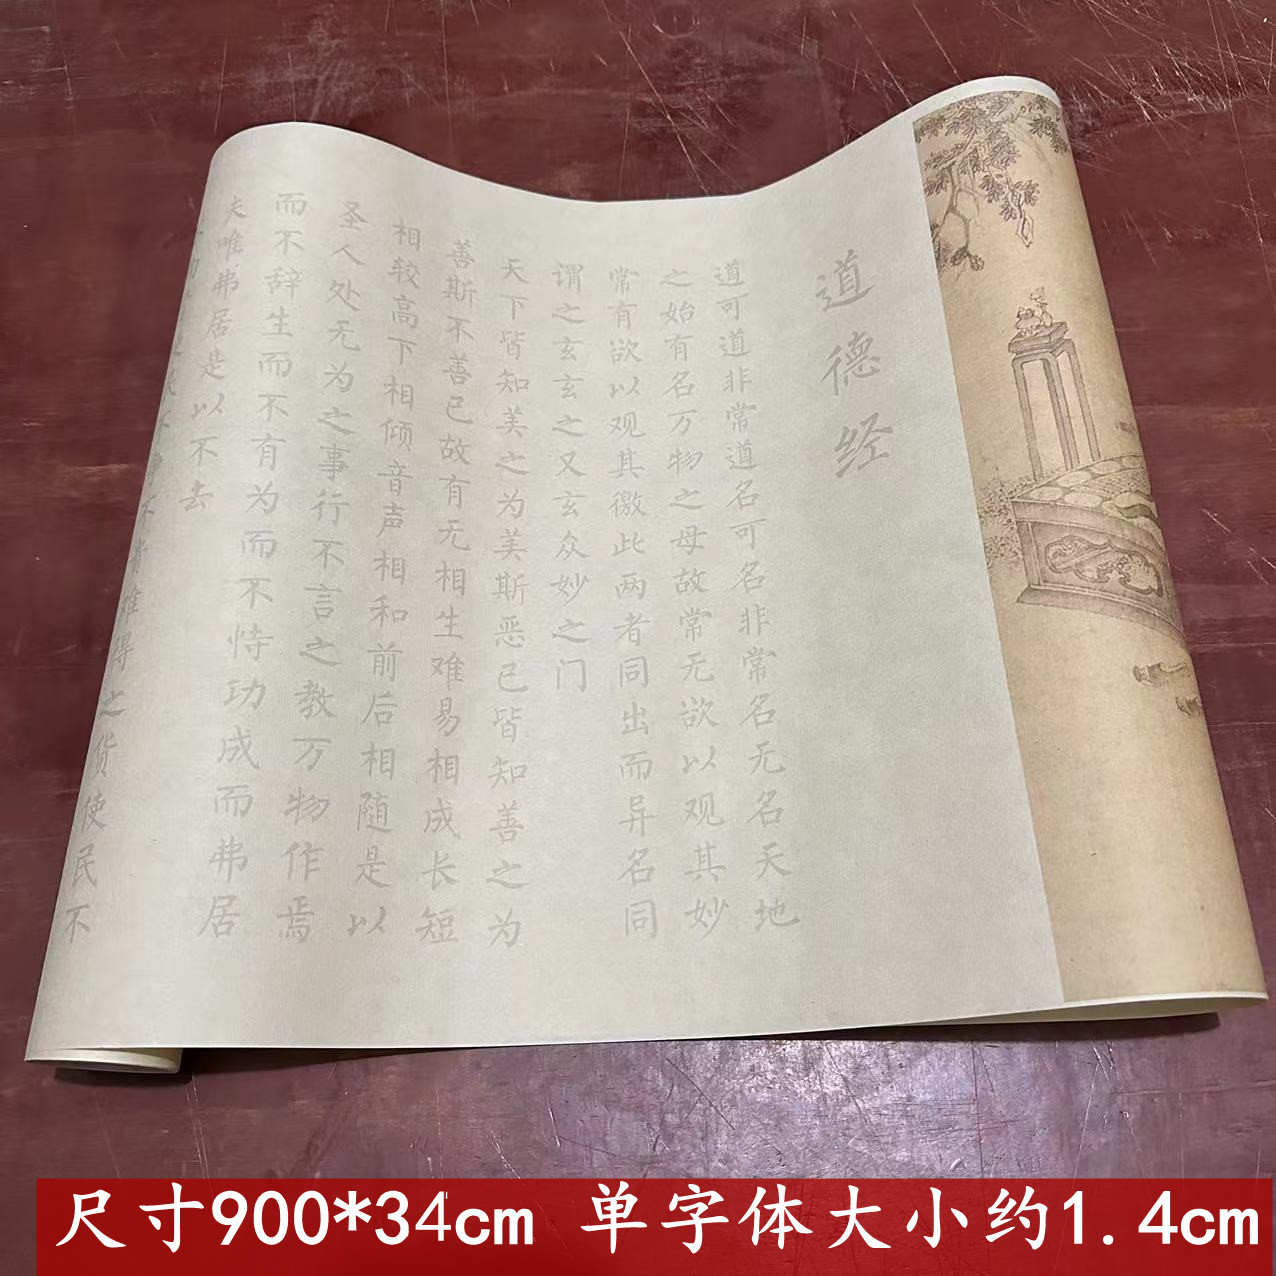 道德经
道可道非常道名可名非常名无名天地
之始有名万物之母故常无欲以观其妙
常有欲以观其徼此两者同出而异名同
谓之玄玄之又玄众妙之门
天下皆知美之为美斯恶已皆知善之为
善斯不善已故有无相生难易相成长短
相较高下相倾音声相和前后相随是以
圣人处无为之事行不言之教万物作焉
而不辞生而不有为而不恃功成而弗居
夫唯弗居是以不去
不贵难得之货使民不
尺寸900*34cm 单字体大小约1.4cm